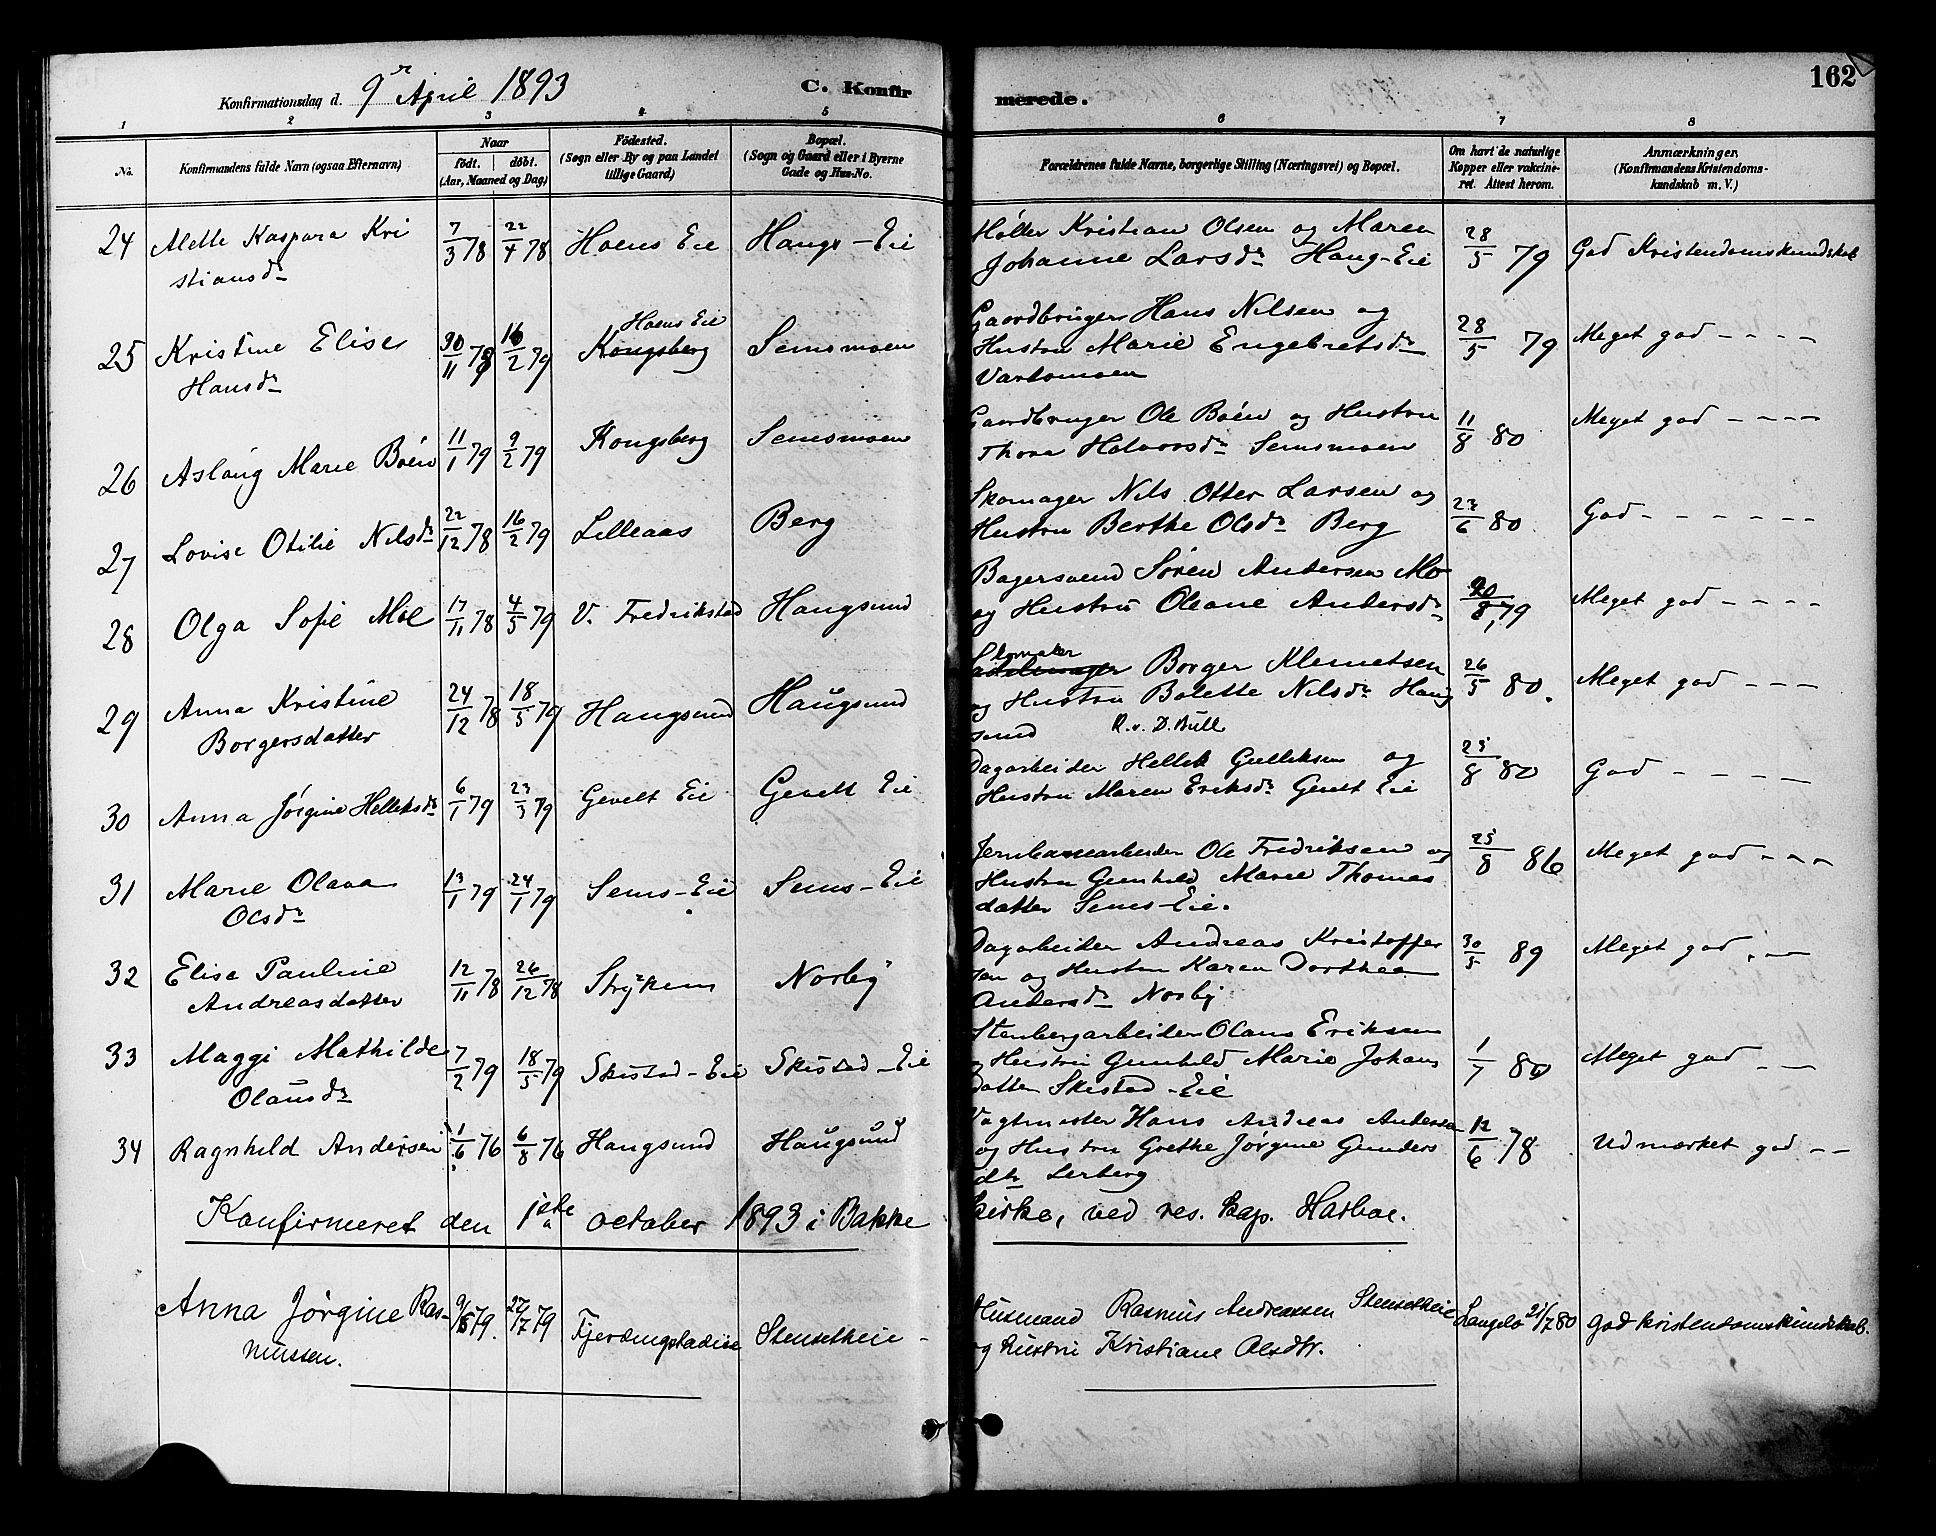 162
Konfirmationsdag d. 9de April 1893 C. Konfirmerede.
1 2 3 4 5 6 7 8
No. Konfirmandens fulde Navn (ogsaa Efternavn) Naar født. døbt. (Aar, Maaned og Dag) Fødested. (Sogn eller By og paa Landet tillige Gaard) Bopæl. (Sogn og Gaard eller i Byerne Gade og Hus-No. Forældrenes fulde Navne, borgerlige Stilling (Næringsvei) og Bopæl. Om havt de naturlige Kopper eller vakcineret. Attest herom. Anmærkninger, (Konfirmandens Kristendomskundskab m. V.)
24 Alette Kaspara Kri 7/3 78 22/4 78 Hoens Eie Haugs-Eie Kristian Olsen og Maren 28/5 79 God Kristendomskundskab
stiansdr Johanne Larsdr Haug-Eie
25 Kristine Elise 30/11 78 16/2 79 Hoens Eie Kongsberg Semsmoen Gaardbruger Hans Nilsen og 28/5 79 Meget god - - - -
Hansdr Hustru Marie Engebretsdr
Vartomoen
26 Aslaug Marie Bøen 11/1 79 9/2 79 Kongsberg Semsmoen Gaardbruger Ole Bøen og Hustru 11/8 80 Meget god - - - -
Thora Halvorsdr Semsmoen
27 Lovise Otilie Nilsdr 22/12 78 16/2 79 Lilleaas Berg Skomager Nils Otter Larsen og 80 God - - - - - -
Hustru Berthe Olsdr Berg
28 Olga Sofie Moe 17/11 78 4/5 79 V. Fredrikstad Haugsund Bagersvend Søren Andersen Mo 20/8 79 Meget god - - - -
og Hustru Oleane Andersdr
29 Anna Kristine 24/12 78 18/5 79 Haugsund Haugsund Skomaker Borger Klemetsen 26/5 80. Meget god - - -
Borgersdatter og Hustru Bolette Nilsdr Haug
sund R. v. D. Bull
30 Anna Jørgine Helleksdr 6/1 79 23/3 79 Gevelt Eie Gevelt Eie Dagarbeider Hellek Gulleksen og 25/8 80 God - - - -
Hustru Maren Eriksdr Gevelt Eie
31 Marie Olava 13/1 79 24/1 79 Sems-Eie Sems-Eie Jernbanearbeider Ole Fredriksen og 25/8 86 Meget god - - -
Olsdr Hustru Gunhild Marie Thomas
datter Sems-Eie.
32 Elise Pauline 12/11 78 26/12 78 Stryken Norby Dagarbeider Andreas Kristoffer 30/5 89 Meget god - -
Andreasdatter sen og Hustru Karen Dorthea
Andersdr Norby
33 Maggi Mathilde 7/2 79 18/5 79 Skistad-Eie Skistad-Eie Stenbergarbeider Olaus Eriksen 1/7 80 Meget god - -
Olausdr og Hustru Gunhild Marie Johans
datter Skistad-Eie
34 Ragnhild Andersen 1/6 76 6/8 76 Haugsund Haugsund Vagtmester Hans Andreas Andersen 12/6 78 Udmærket god - -
og Hustru Grethe Jørgine Gunders
dtr Lerberg
Konfirmeret den 1ste october 1893 i Bakke kirke, ved res. kap. Harboe.
Anna Jørgine Ras- 79. 27/7 79 Fjerdingstadeie Stensetheie - Husmand Rasmus Andreassen Stensetheie Langelo 21/7 80 god kristendomskundskab.
mussen. og hustru Kristiane Olsdtr.